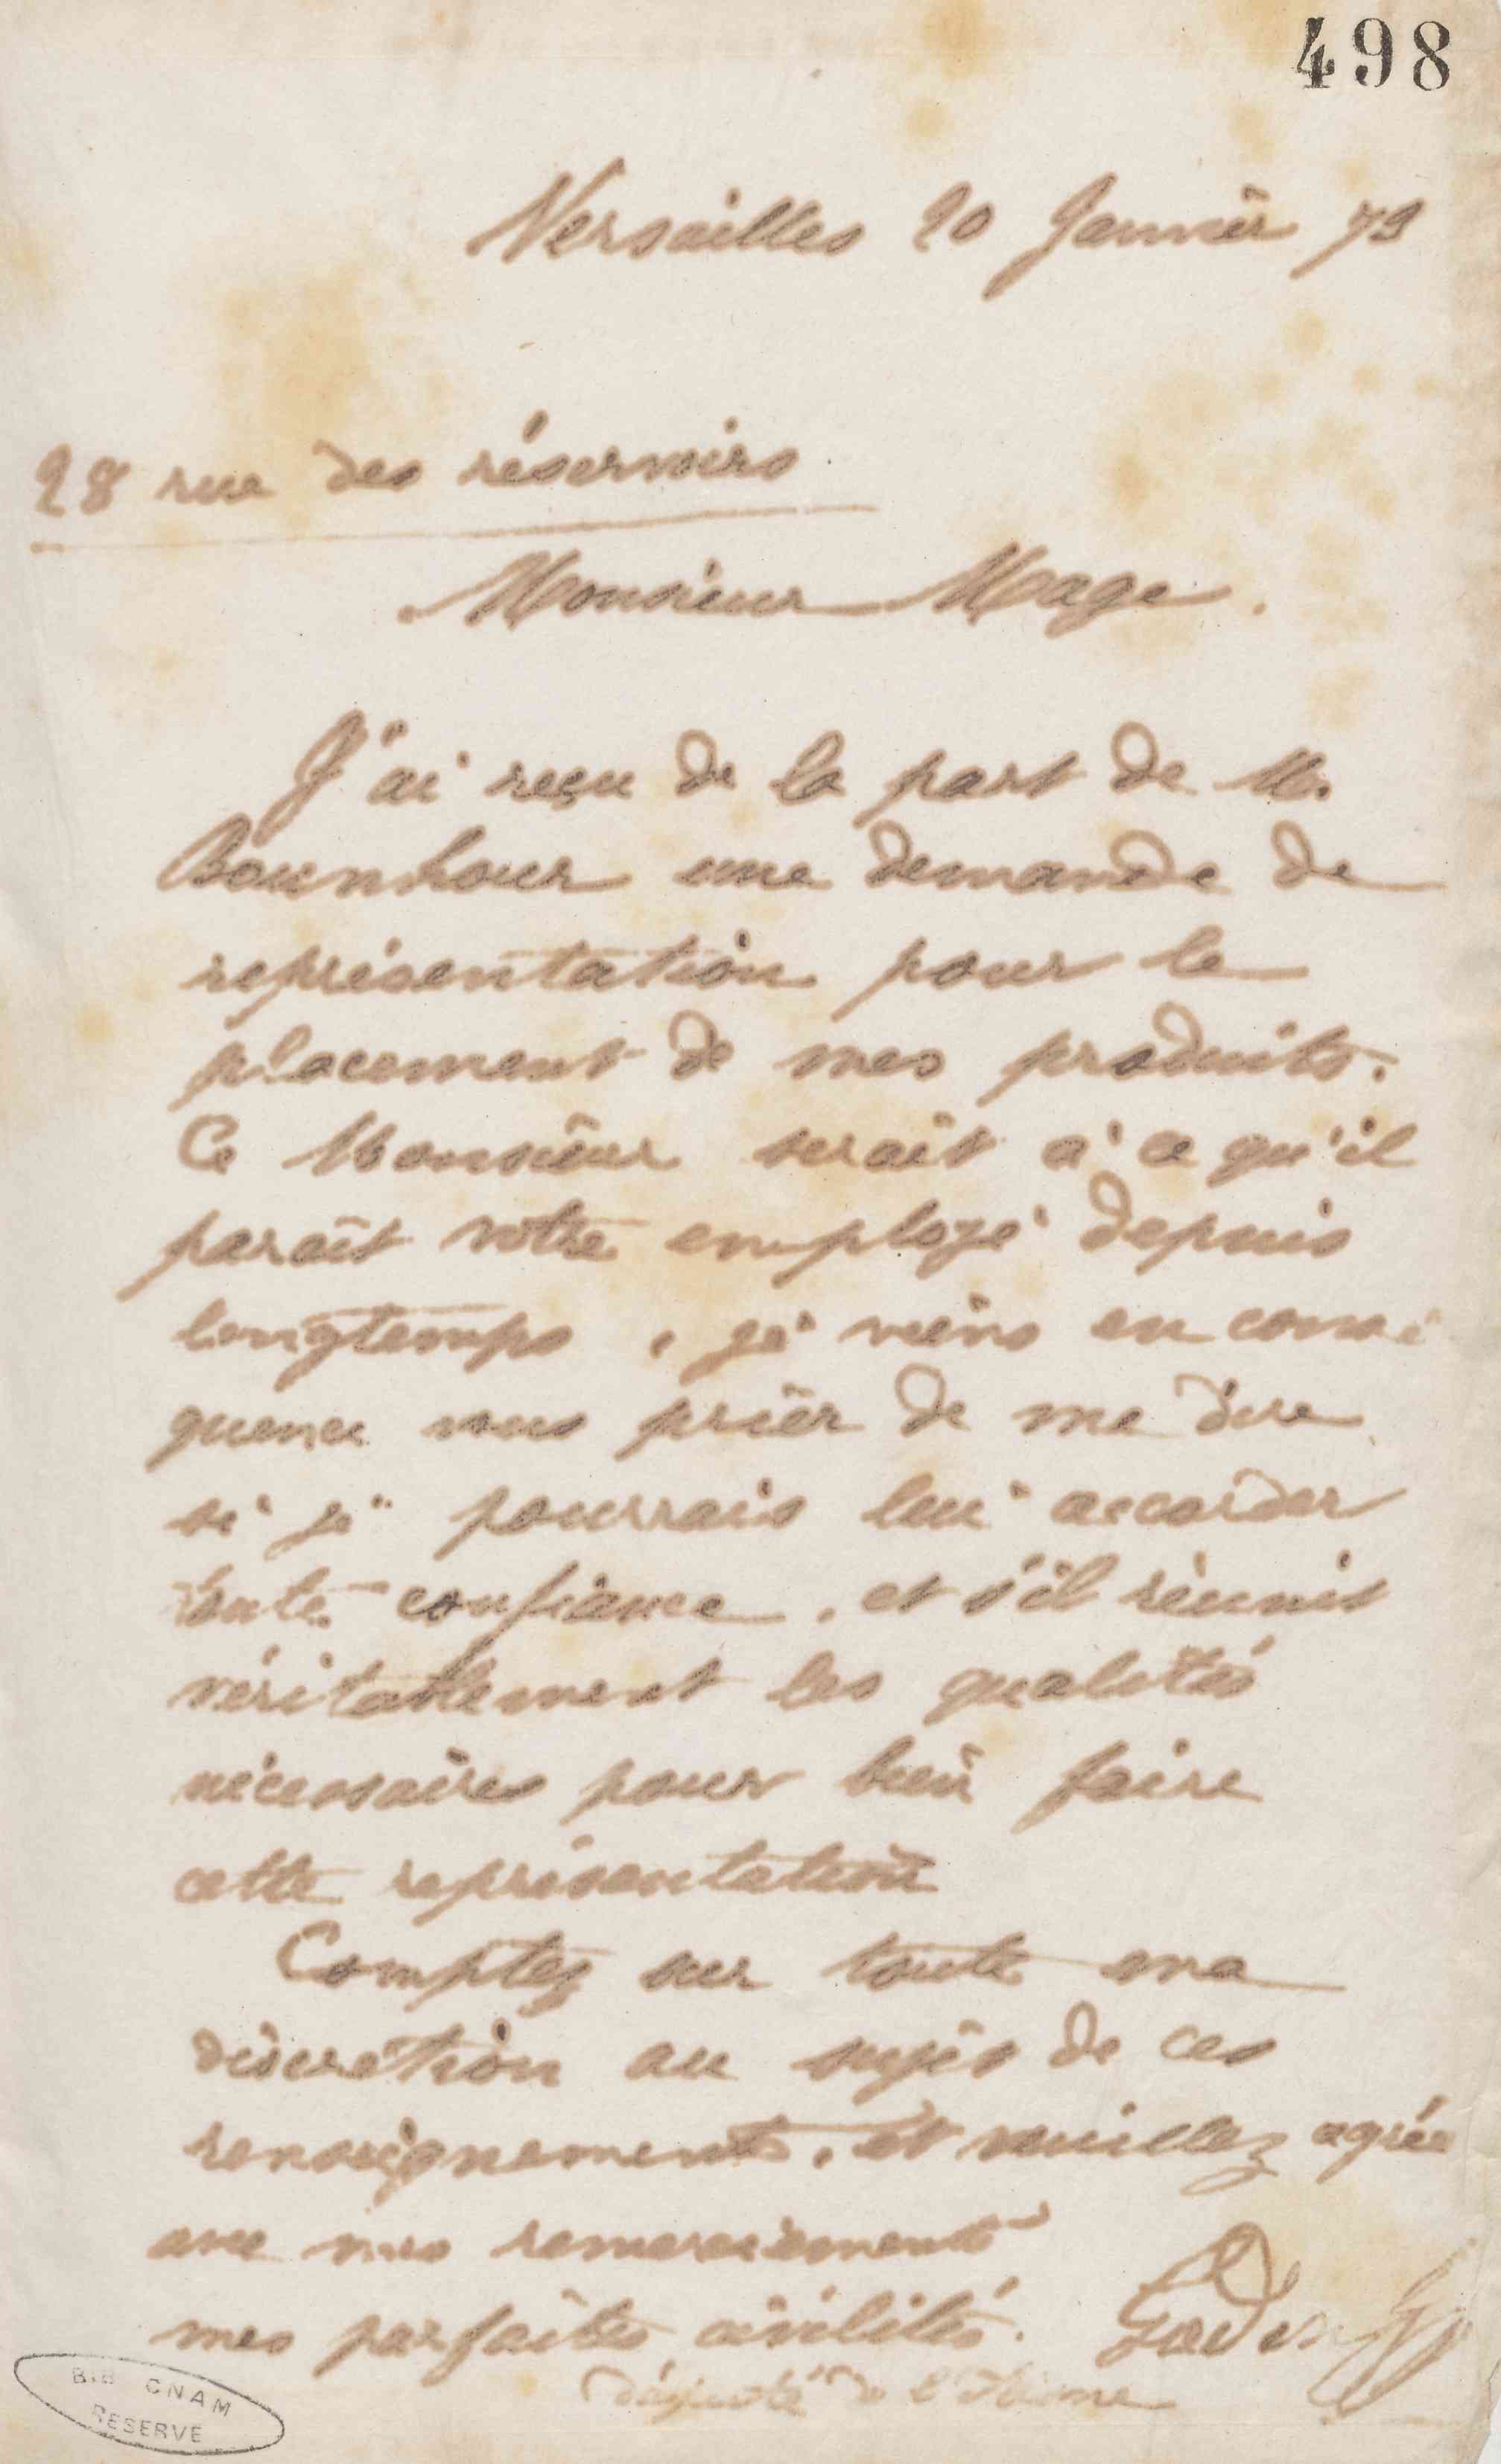 498
Versailles 20 Janvier 73
28 rue des réservoirs
Monsieur Mage.
J'ai reçu de la part de M.
Bournhour une demande de
représentation pour le
placement de mes produits.
Ce Monsieur serait à ce qu'il
paraît votre employé depuis
longtemps, je viens en consé
quence vous prier de me dire
si je pourrais lui accorder
toute confiance, et s'il réunit
véritablement les qualités
nécessaires pour bien faire
cette représentation
Comptez sur toute ma
discretion au sujet de ces
renseignements, et veuillez agrée
avec mes remerciements
mes parfaites civilités. Godin
député de l'Aisne
BIB CNAM
RESERVE